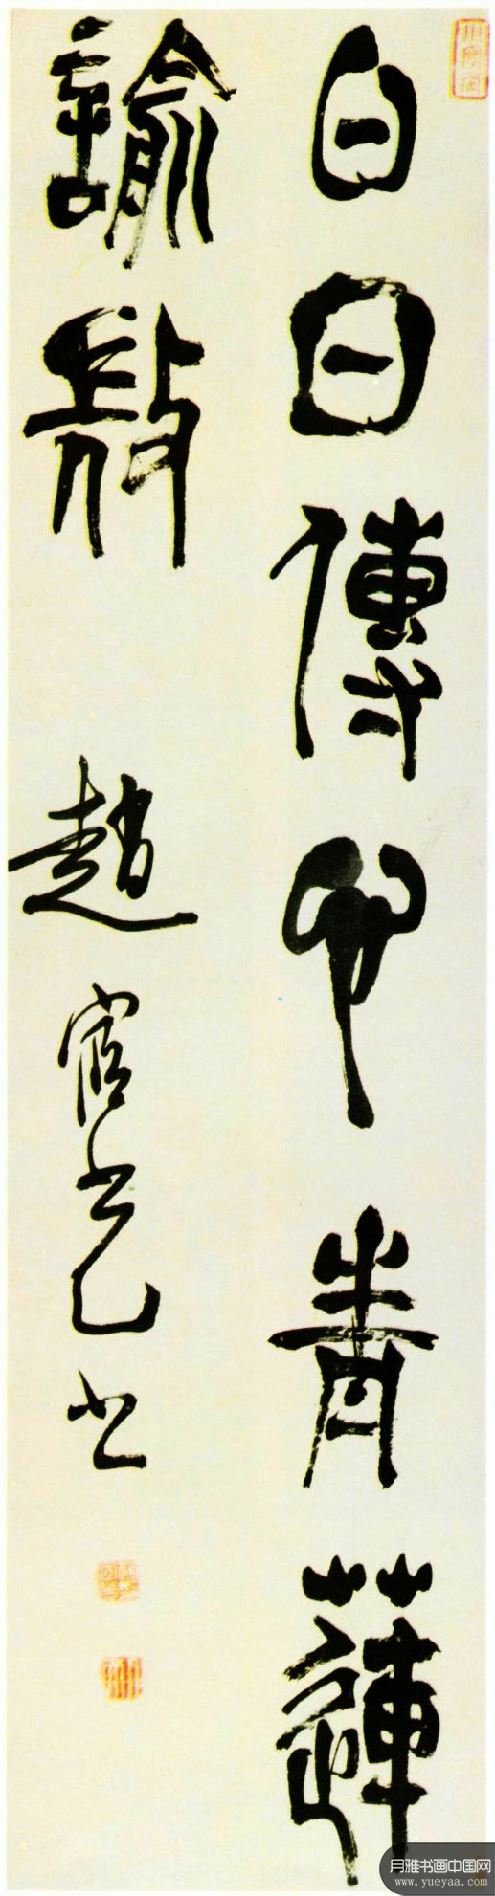 白日傳心青蓮
諭𢼸
趙宧光書
月雅书画中国网
www.yueyaa.com